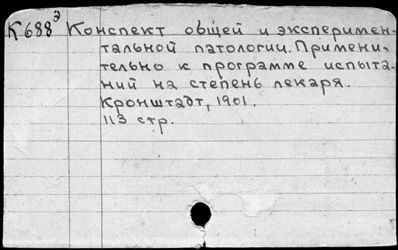 К688э Конспект общей и эксперимен-
тальной патологии. Примени-
тельно к программе испыта-
ний на степень лекаря.
Кронштадт, 1901.
113 стр.